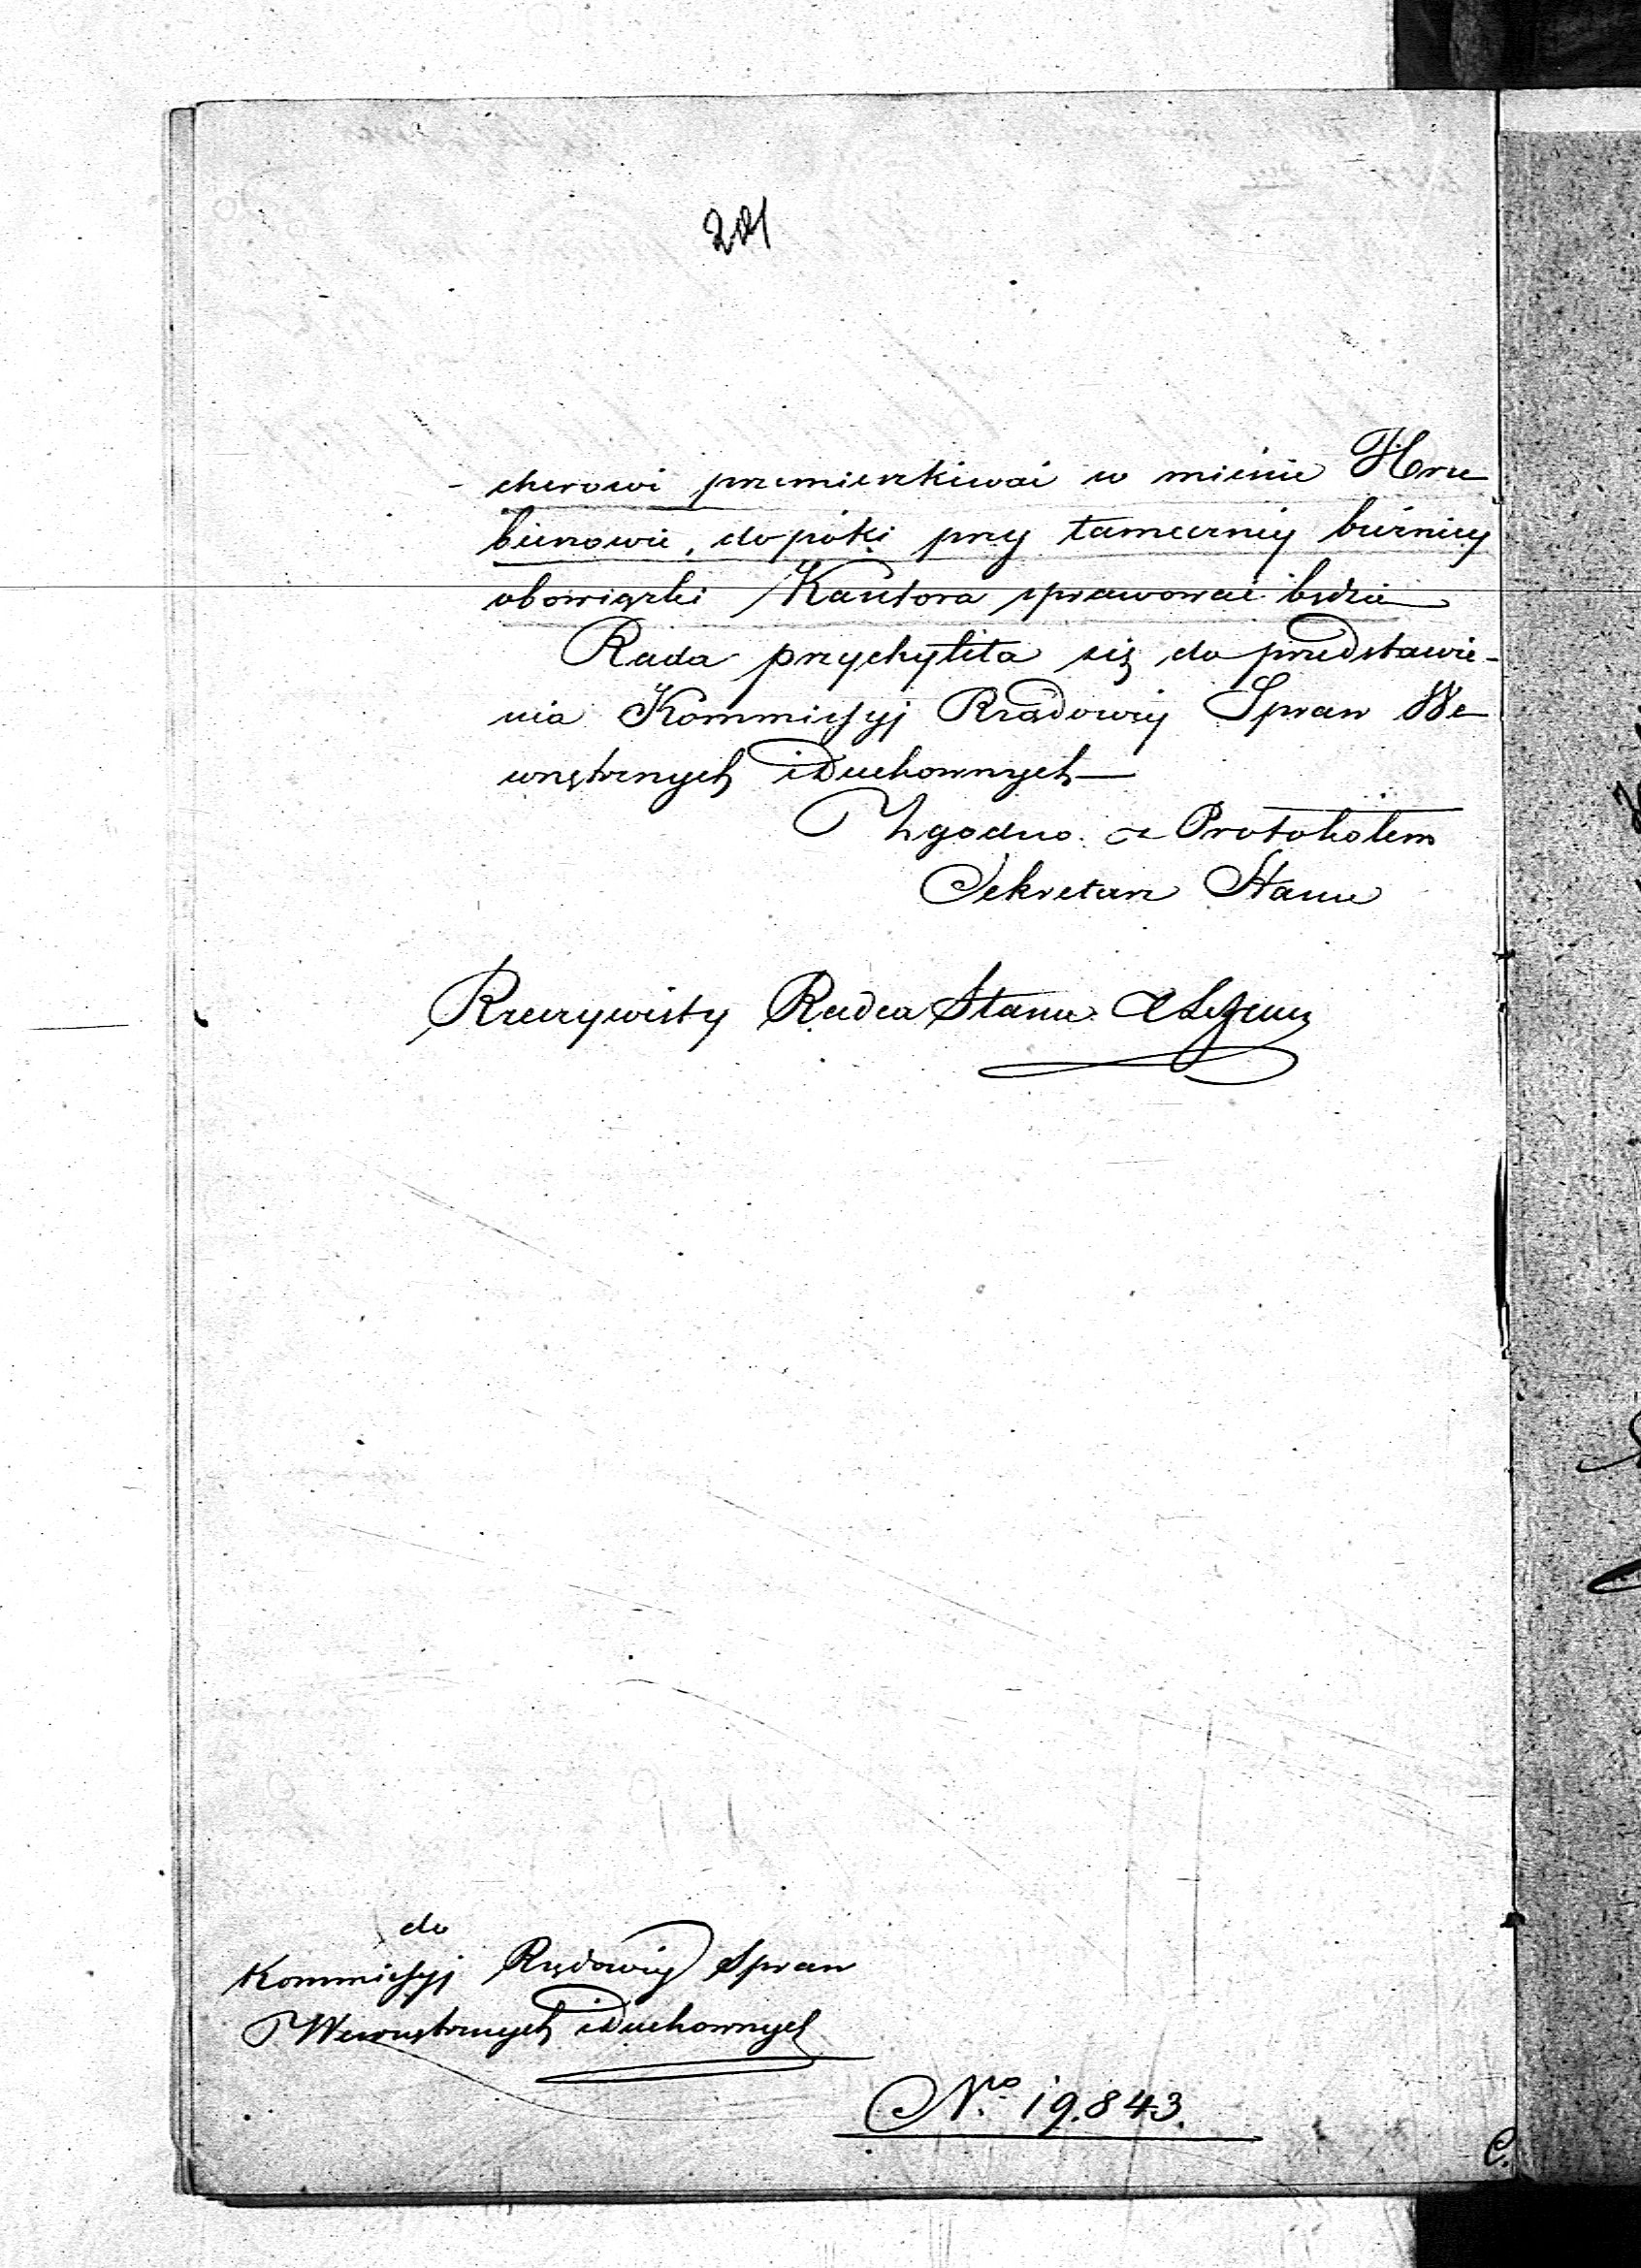 cherowi przemieszkiwać w mieście Hru
bieszowie, dopóki przy tameczniej bużnicy
obowiązki Kantora sprawować będzie
Rada przychyliła się do przedstawie-
nia Kommissyj Rządowéj Spraw We
wnętrznych i Duchownych
Zgodno z Protokołem
Sekretarz Stanu
Rzeczywisty Radca Stanu
do
Kommissyj Rządowéj Spraw
Wewnętrznych i Duchownych
No. 19.843.
C.